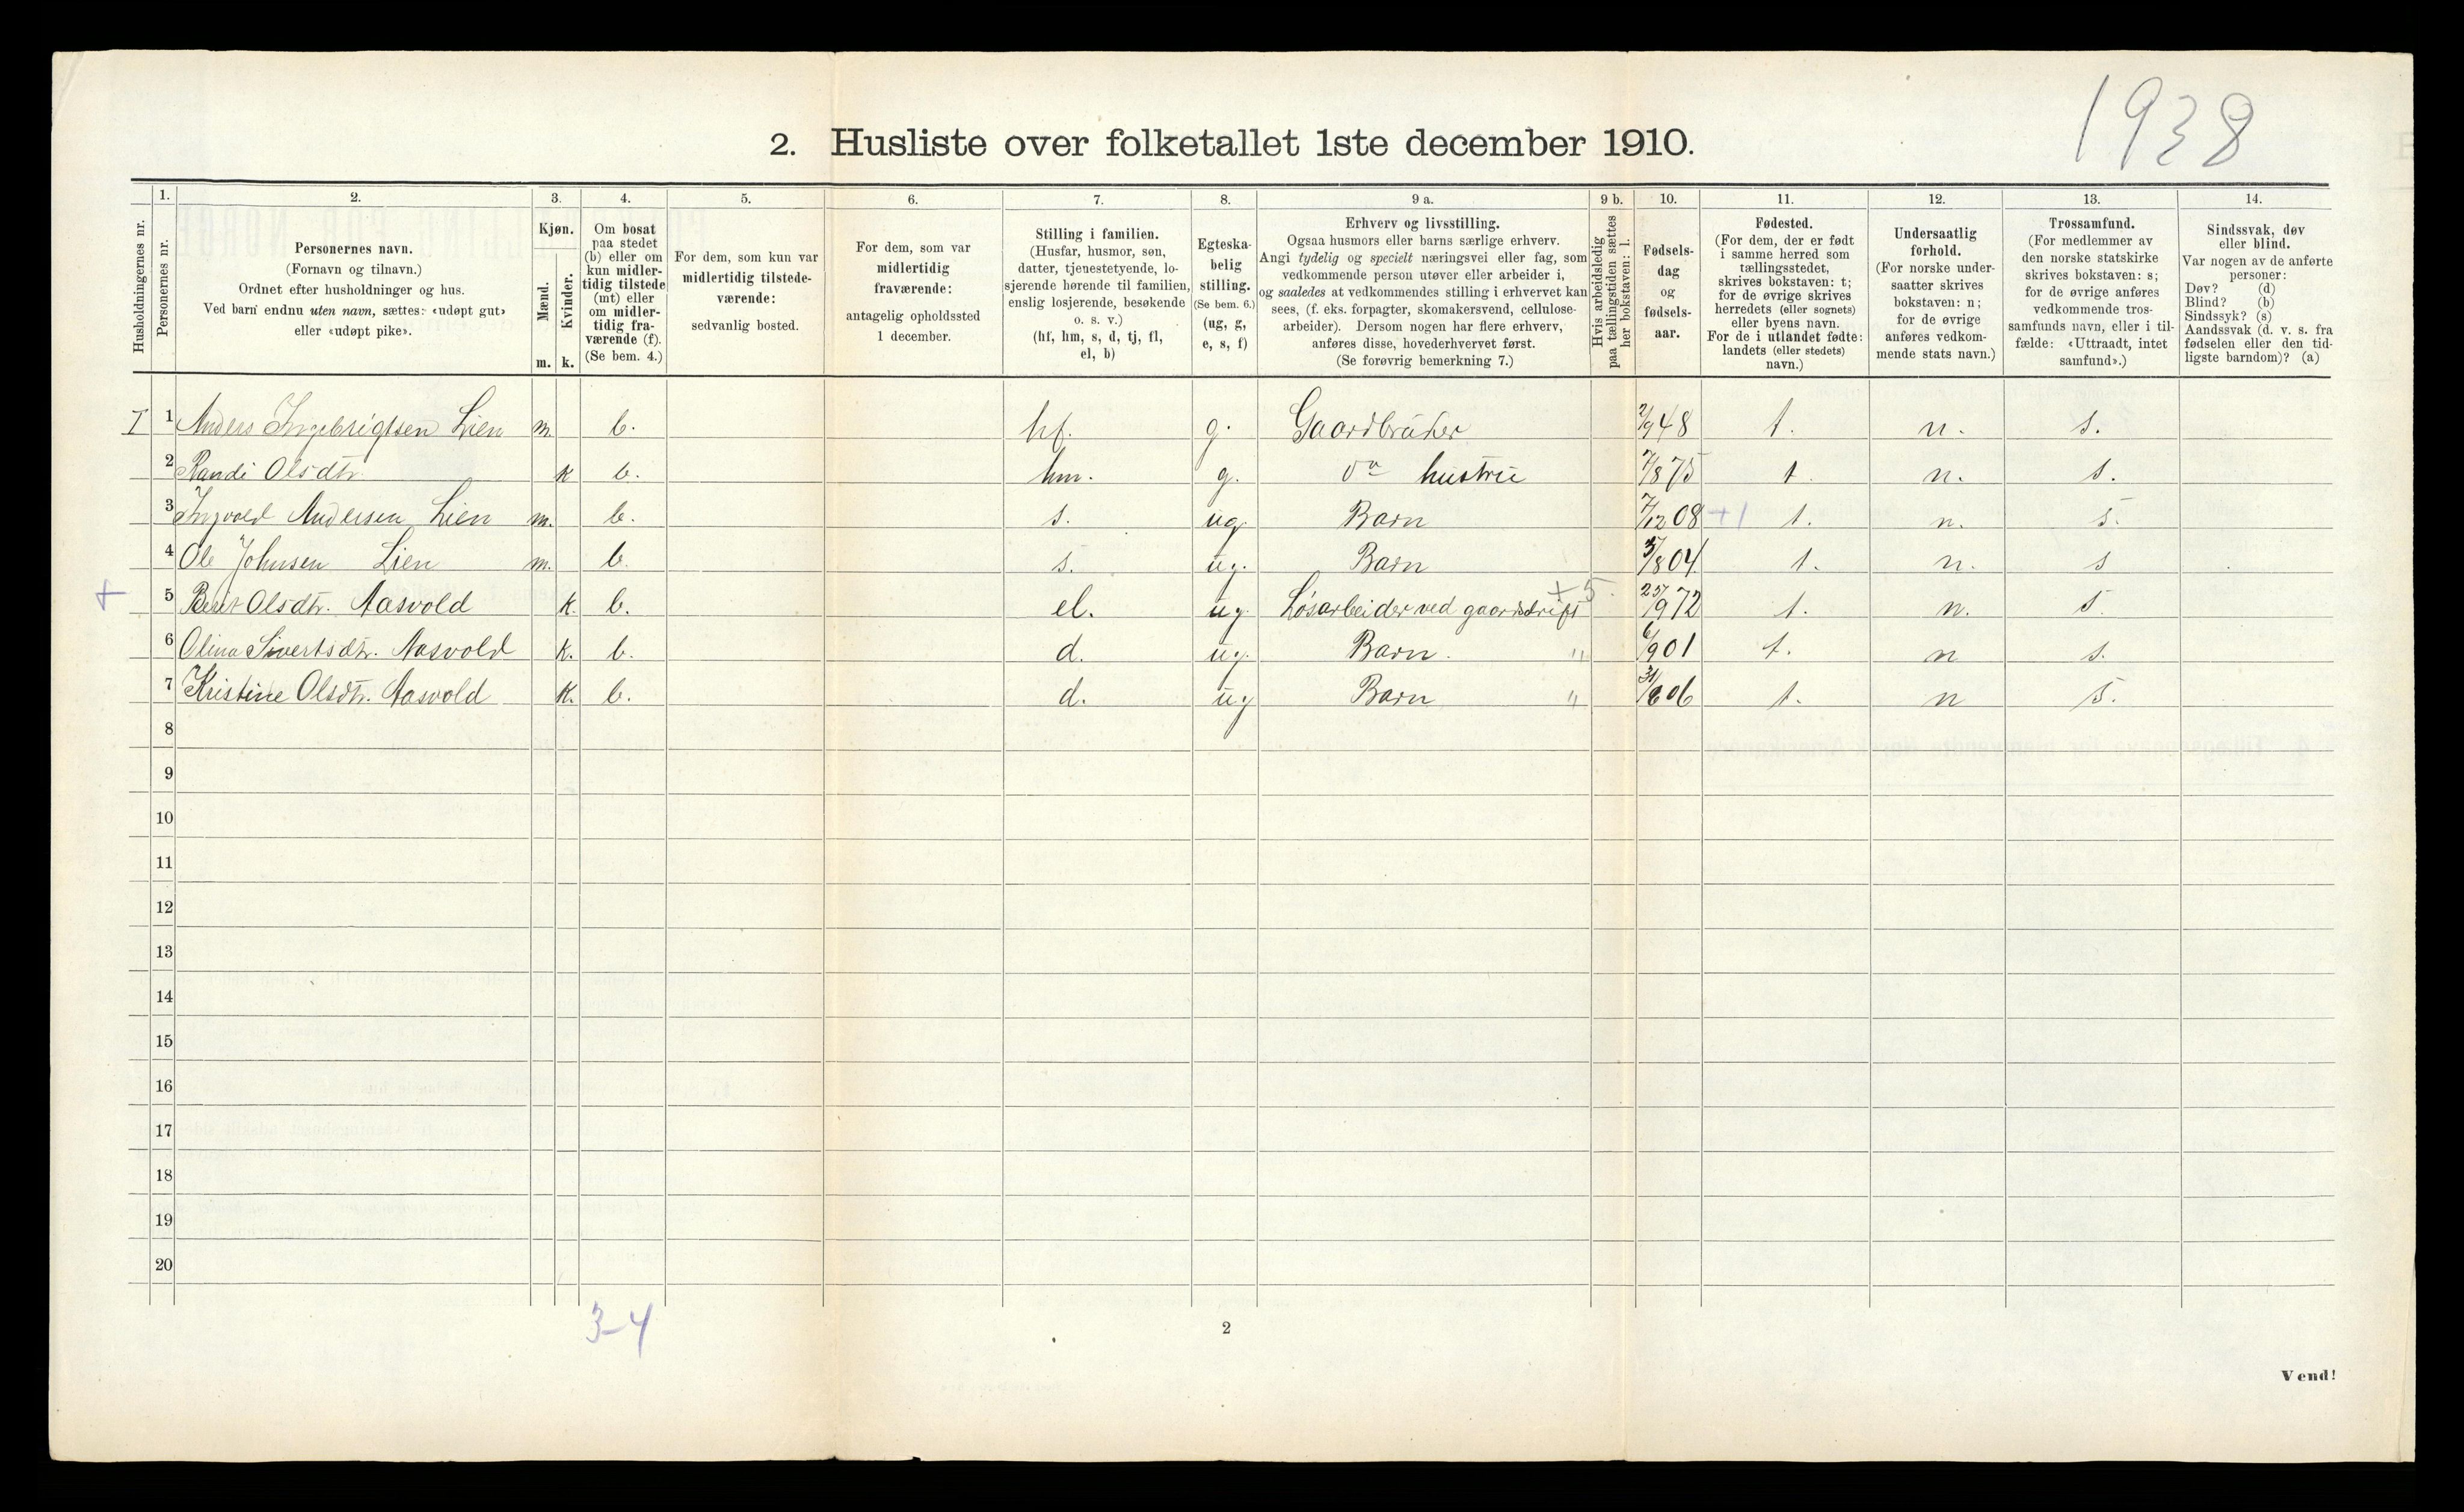 1938
2. Husliste over folketallet 1ste december 1910.
Husholdningernes nr.
1.
Personernes nr.
2.
Personernes navn.
(Fornavn og tilnavn.)
Ordnet efter husholdninger og hus.
Ved barn endnu uten navn, sættes: «udøpt gut»
eller «udøpt pike».
3.
Kjøn.
Mænd.
m.
Kvinder.
k.
4.
Om bosat
paa stedet
(b) eller om
kun midler-
tidig tilstede
(mt) eller
om midler-
tidig fra-
værende (f).
(Se bem. 4.)
5.
For dem, som kun var
midlertidig tilstede-
værende:
sedvanlig bosted.
6.
For dem, som var
midlertidig
fraværende:
antagelig opholdssted
1 december.
7.
Stilling i familien.
(Husfar, husmor, søn,
datter, tjenestetyende, lo-
sjerende hørende til familien,
enslig losjerende, besøkende
o. s. v.)
(hf, hm, s, d, tj, fl,
el, b)
8.
Egteska-
belig
stilling.
(Se bem. 6.)
(ug, g,
e, s, f)
9 a.
Erhverv og livsstilling.
Ogsaa husmors eller barns særlige erhverv.
Angi tydelig og specielt næringsvei eller fag, som
vedkommende person utøver eller arbeider i,
og saaledes at vedkommendes stilling i erhvervet kan
sees, (f. eks. forpagter, skomakersvend, cellulose-
arbeider). Dersom nogen har flere erhverv,
anføres disse, hovederhvervet først.
(Se forøvrig bemerkning 7.)
9 b.
Hvis arbeidsledig
paa tællingstiden sættes
her bokstaven: l.
10.
Fødsels-
dag
og
fødsels-
aar.
11.
Fødested.
(For dem, der er født
i samme herred som
tællingsstedet,
skrives bokstaven: t;
for de øvrige skrives
herredets (eller sognets)
eller byens navn.
For de i utlandet fødte:
landets (eller stedets)
navn.)
12.
Undersaatlig
forhold.
(For norske under-
saatter skrives
bokstaven: n;
for de øvrige
anføres vedkom-
mende stats navn.)
13.
Trossamfund.
(For medlemmer av
den norske statskirke
skrives bokstaven: s;
for de øvrige anføres
vedkommende tros-
samfunds navn, eller i til-
fælde: «Uttraadt, intet
samfund».)
14.
Sindssvak, døv
eller blind.
Var nogen av de anførte
personer:
Døv? (d)
Blind? (b)
Sindssyk? (s)
Aandssvak (d. v. s. fra
fødselen eller den tid-
ligste barndom)? (a)
I 1 Anders Ingebrigtsen Lien m. b. hf. g. Gaardbruker 2/9 48 t. n. s.
2 Randi Olsdtr. k b. hm. g. do hustru 7/8 75 t. n. s.
3 Ingvold Andersen Lien m. b. s. ug. Barn 7/12 08 +1 t. n. s.
4 Ole Johnsen Lien m. b. s. ug. Barn /8 04 t. n. s
+ 5 Berit Olsdtr. Aasvold k. b. el. ug Løsarbeider ved gaardsdrift +5. 25/9 72 t. n. s.
6 Olina Sivertsdtr. Aasvold k. b. d. ug. Barn. " 6/9 01 t. n s.
7 Kristine Olsdtr. Aasvold k. b. d. ug Barn " 06 t. n s.
8
9
10
11
12
13
14
15
16
17
18
19
20
3-4
2
Vend!